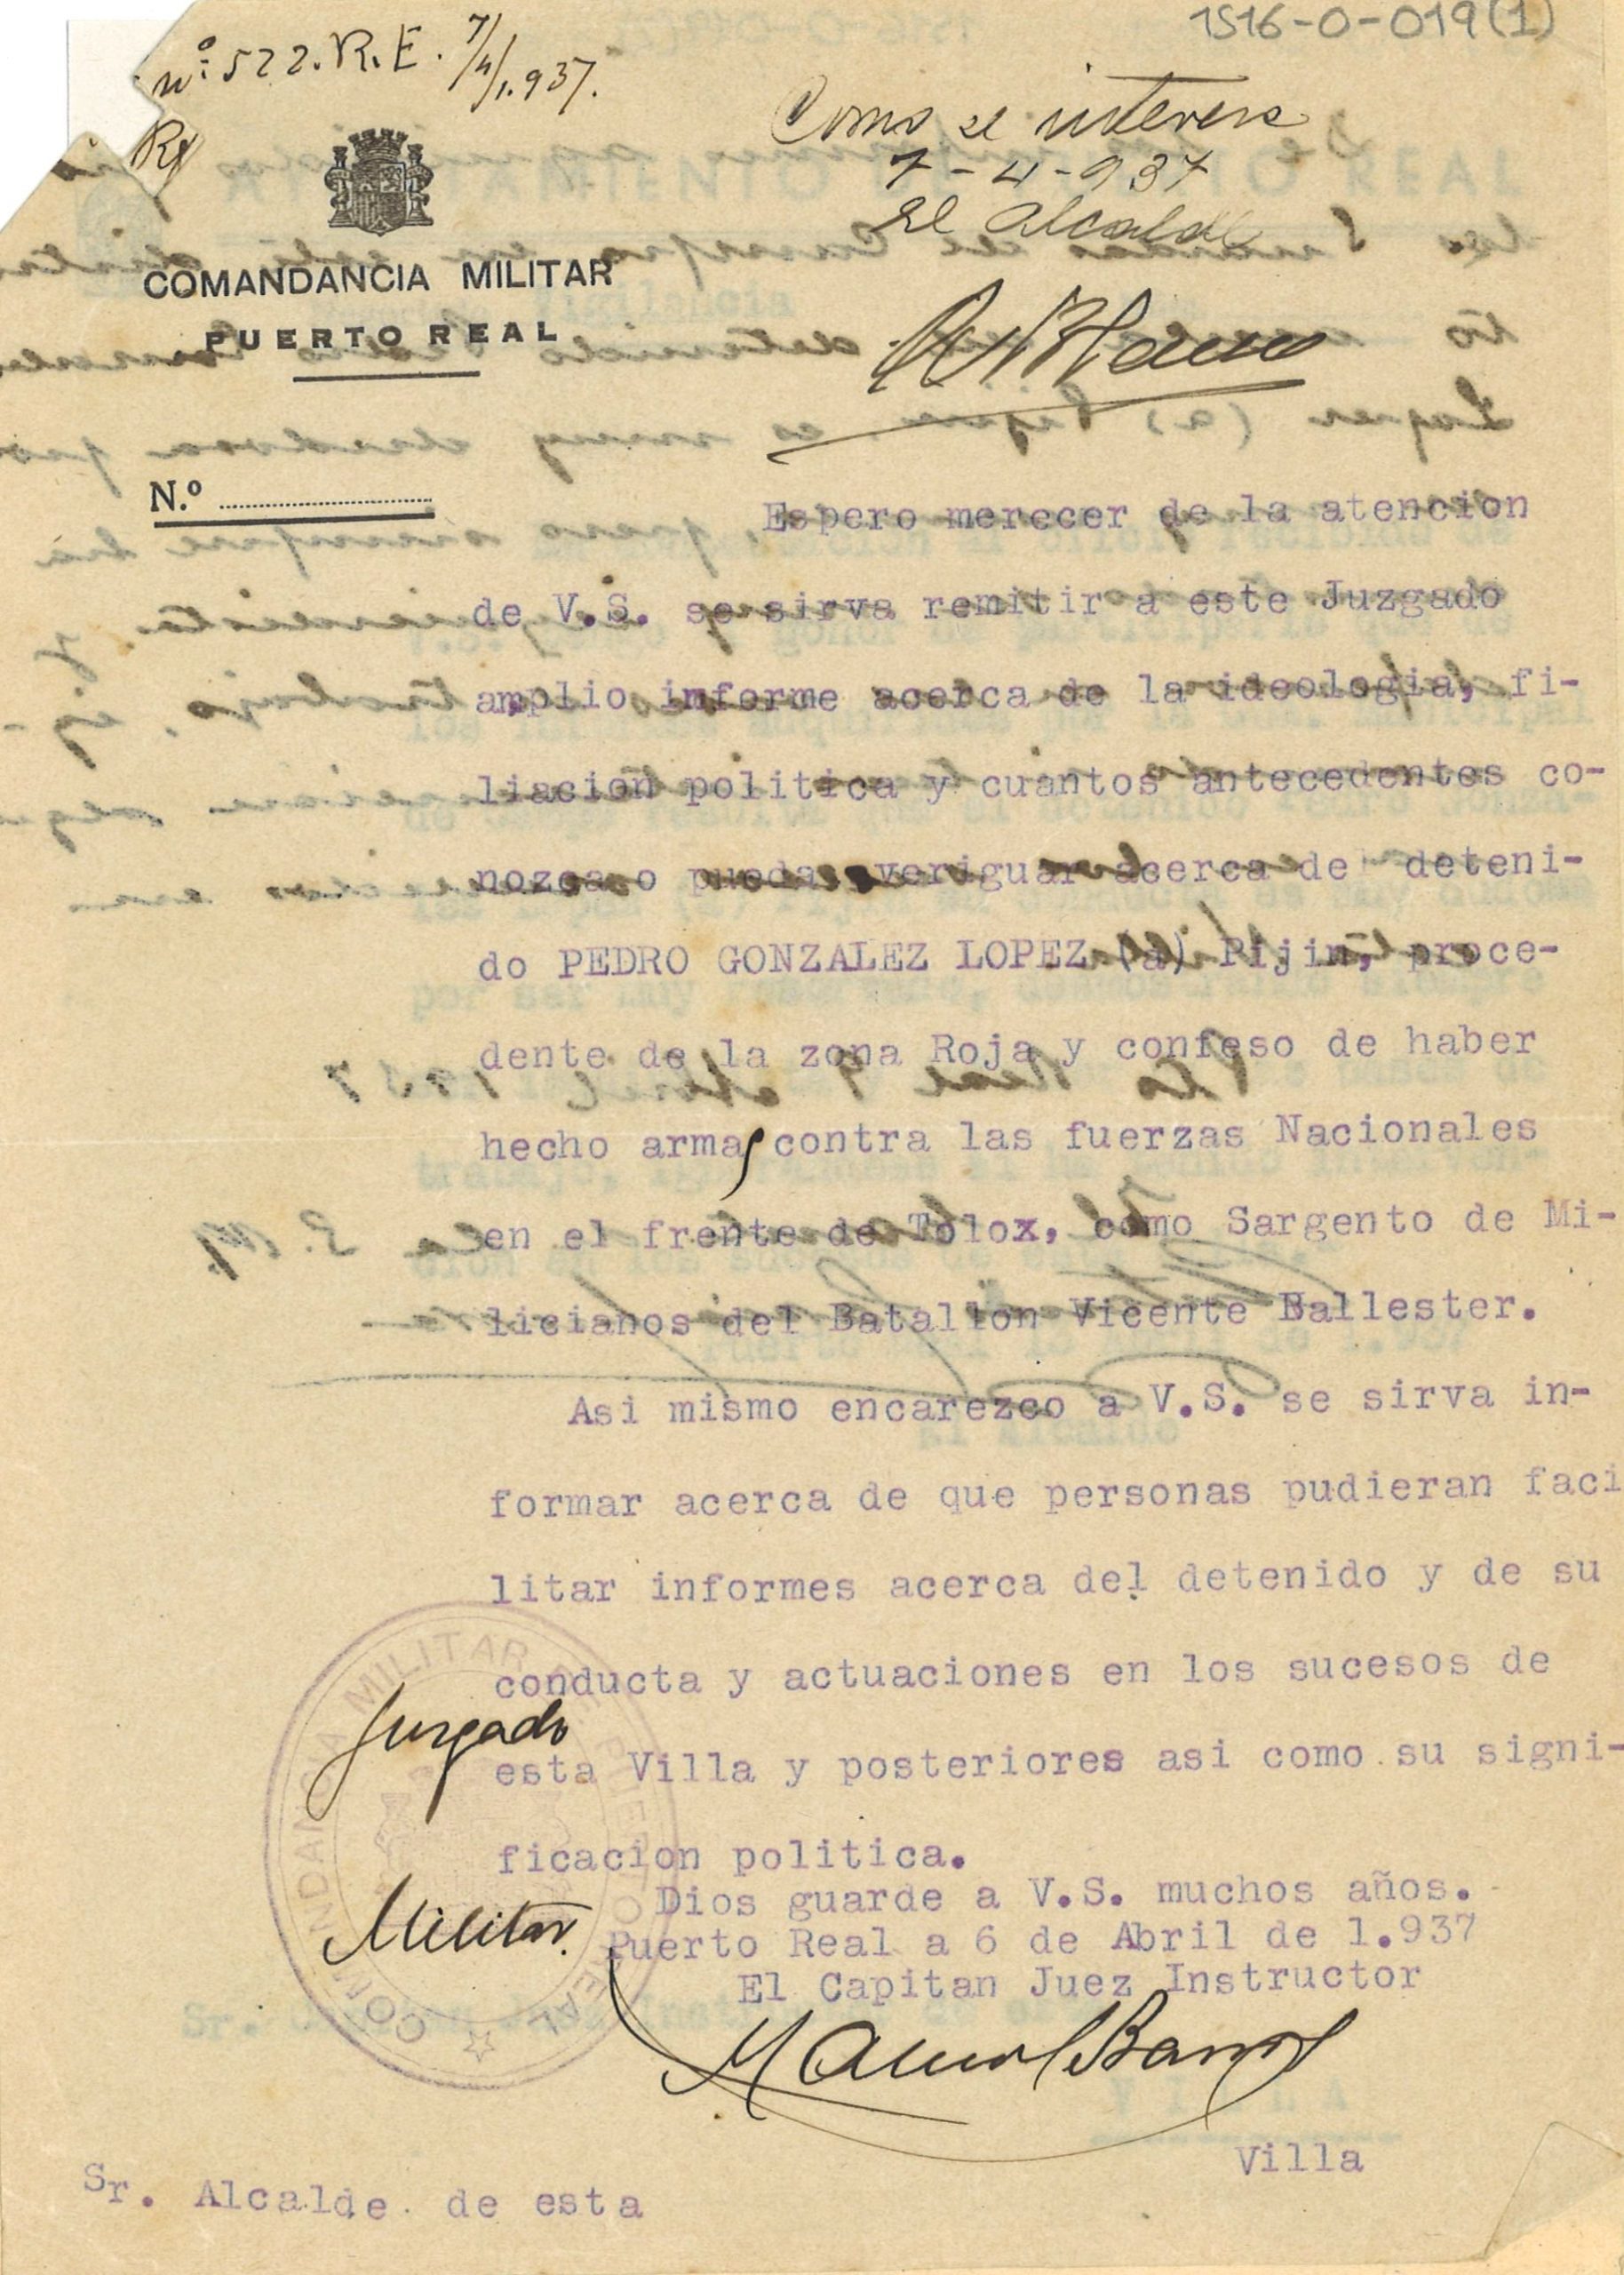 1516-0-019(1)
nº 522. R.E. 7/4/1.937.
Como se interesa
7-4-937
El Alcalde
COMANDANCIA MILITAR
PUERTO REAL
N.º
Espero merecer de la atencion
de V.S. se sirva remitir a este Juzgado
amplio informe acerca de la ideologia, fi-
liacion politica y cuantos antecedentes co-
nozca o pueda averiguar acerca del deteni-
do PEDRO GONZALEZ LOPEZ (a) Pijin, proce-
dente de la zona Roja y confeso de haber
hecho armas contra las fuerzas Nacionales
en el frente de Tolox, como Sargento de Mi-
licianos del Batallon Vicente Ballester.
Asi mismo encarezco a V.S. se sirva in-
formar acerca de que personas pudieran faci
litar informes acerca del detenido y de su
conducta y actuaciones en los sucesos de
esta Villa y posteriores asi como su signi-
ficacion politica.
Dios guarde a V.S. muchos años.
Puerto Real a 6 de Abril de 1.937
El Capitan Juez Instructor
Juzgado
Militar.
COMANDANCIA MILITAR DE PUERTO REAL
Villa
Sr. Alcalde de esta